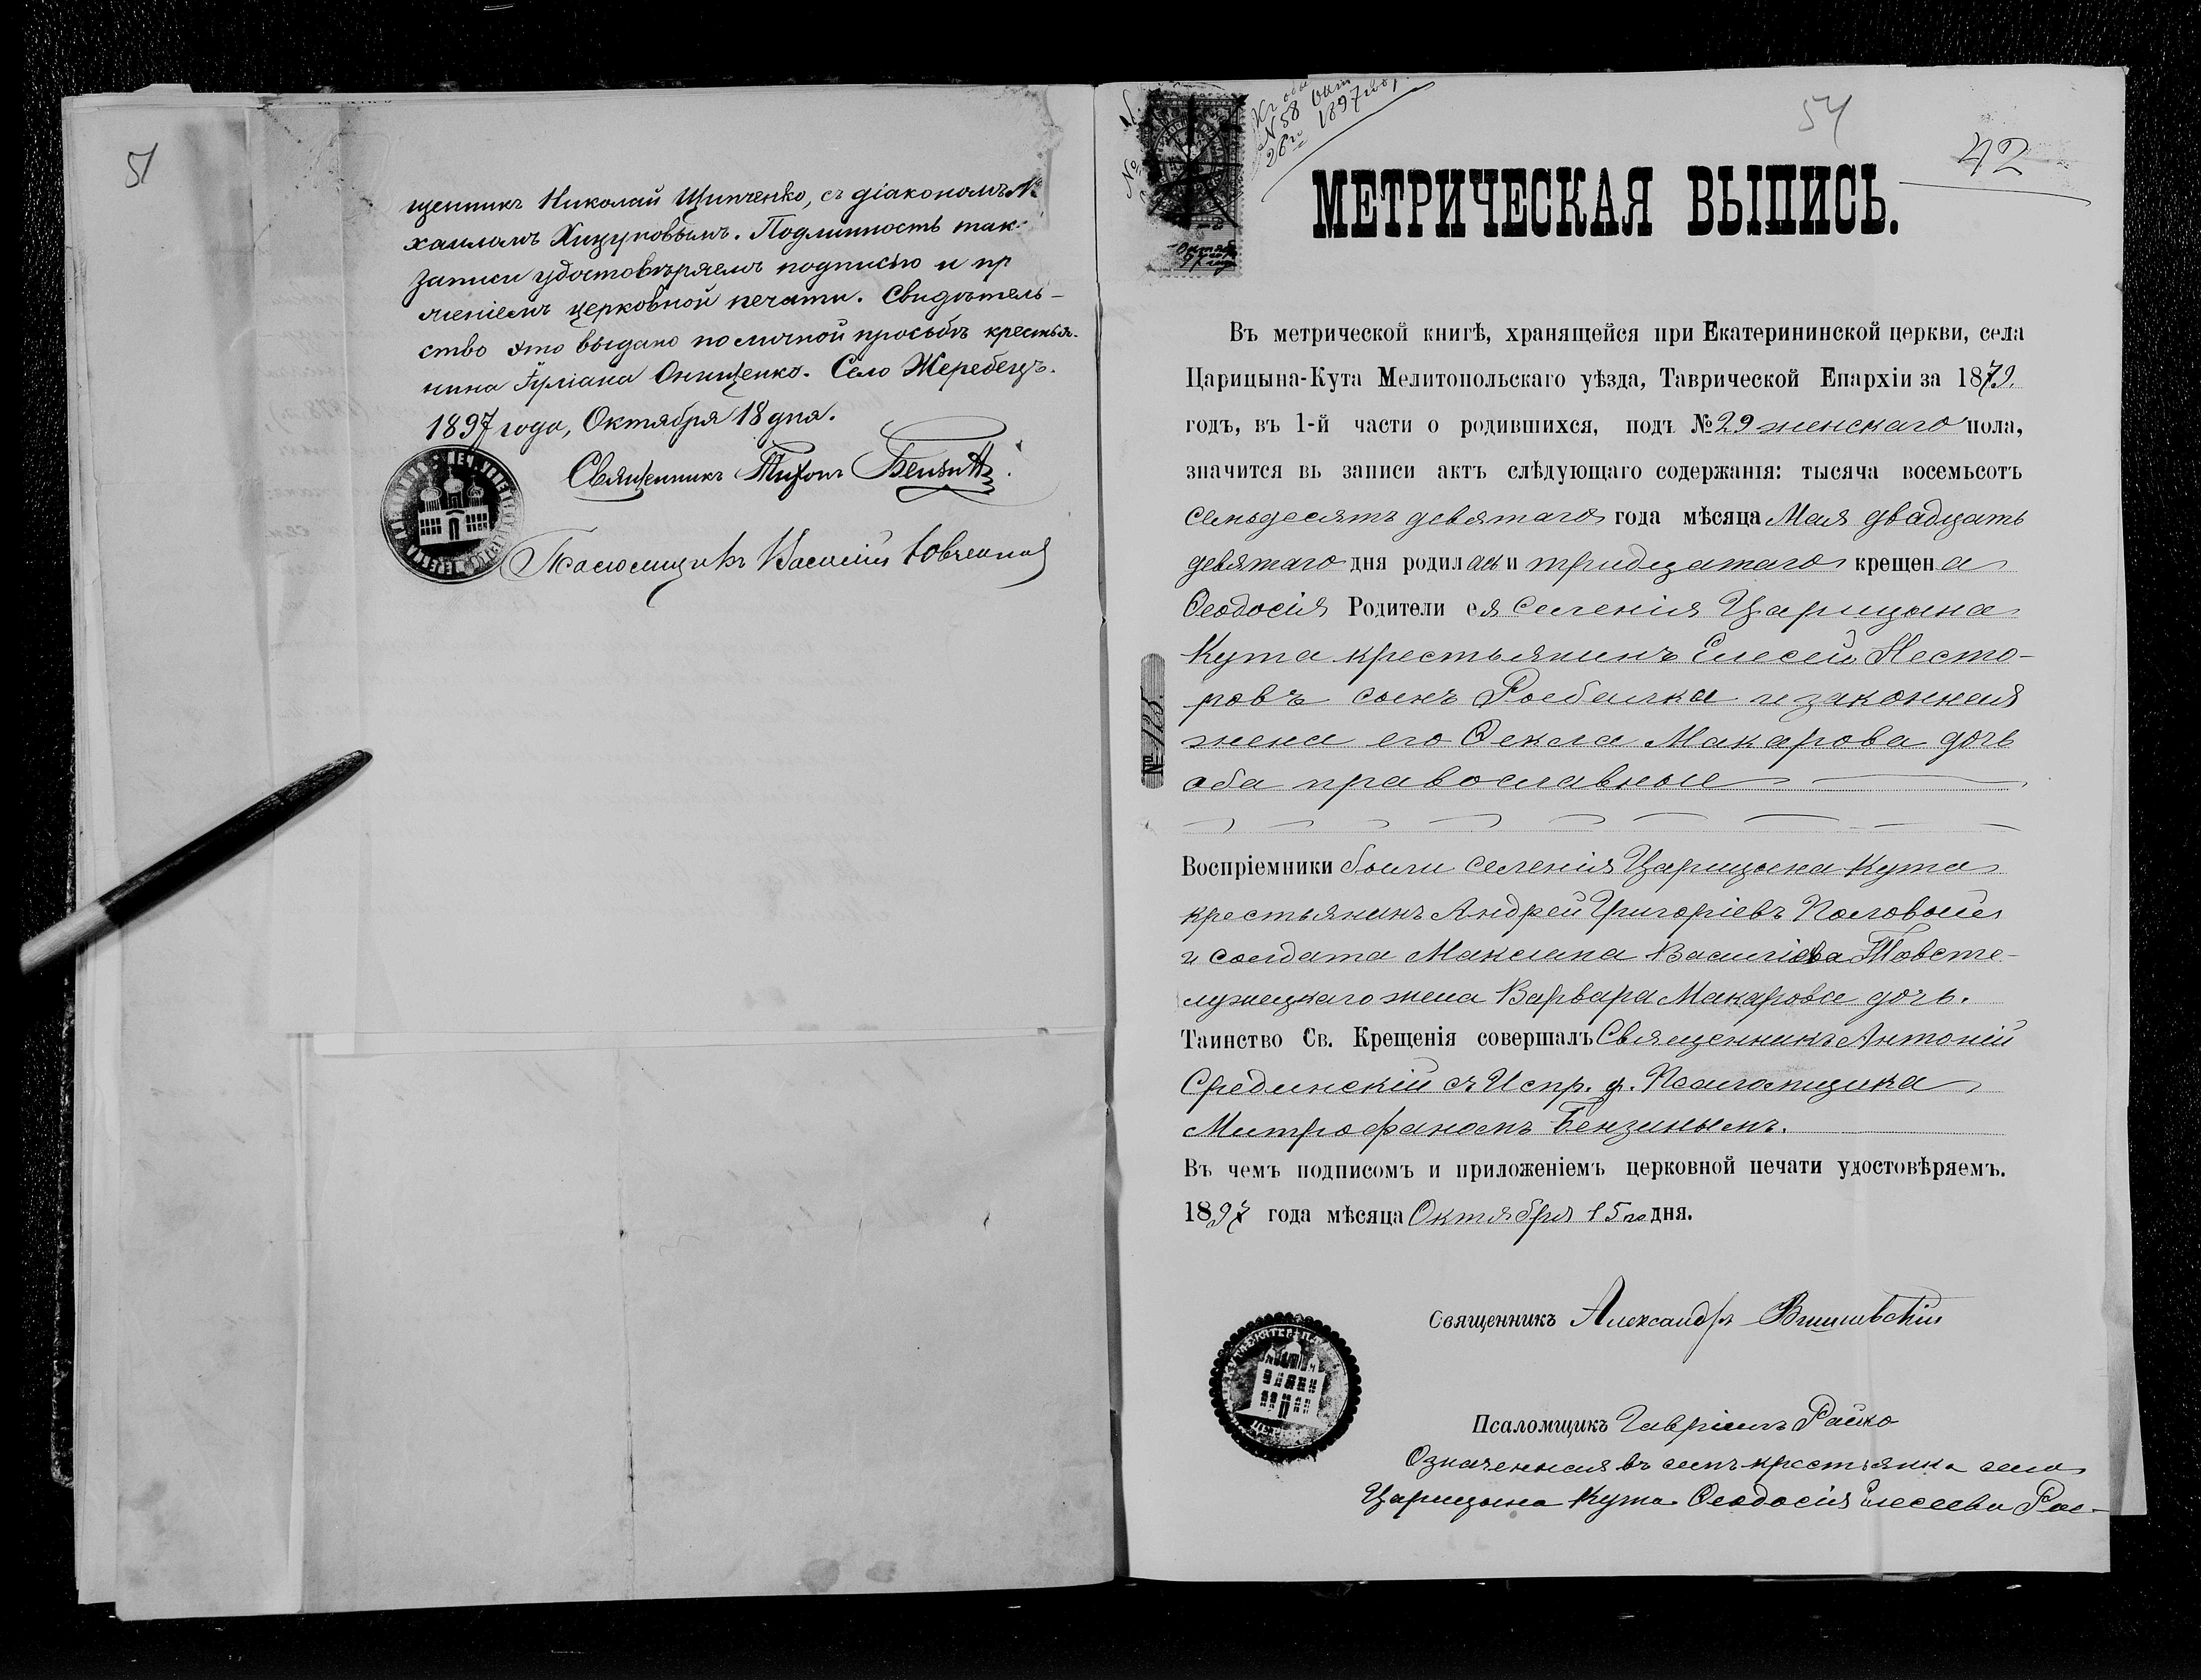 51
щенникъ Николай Щипченко, съ діакономъ
хаиломъ Хицуновымъ. Подлинность так
записи удостовѣряемъ подписью и пр
женіемъ церковной печати. Свидѣтель-
ство это выдано по личной просьбѣ крестья-
нина Іуліана Онищенко. Село Жеребецъ.
1897 года, Октября 18 дня.
Священникъ Тихонъ
Псаломщикъ Василій
54
42
№ 58
26го 1897
МЕТРИЧЕСКАЯ ВЫПИСЬ.
Въ метрической книгѣ, хранящейся при Екатерининской церкви, села
Царицына-Кута Мелитопольскаго уѣзда, Таврической Епархіи за 1879.
годъ, въ 1-й части о родившихся, подъ № 29 женскаго пола,
значится въ записи актъ слѣдующаго содержанія: тысяча восемьсотъ
семьдесятъ девятаго года мѣсяца Мая двадцать
девятаго дня родилась и тридцатаго крещена
Ѳеодосія Родители ея селенія Царицына
Кута крестьянинъ Елесей Несто-
ровъ сынъ Росбалка и законная
жена его Ѳекла Макарова дочь
оба православные
№ 125.
Воспріемники были селенія Царицына Кута
крестьянинъ Андрей Григоріевъ Половый
и солдата Максима Васильева Товсте-
лужецкаго жена Варвара Макарова дочь.
Таинство Св. Крещенія совершалъ Священникъ Антоній
Срединскій съ Испр. д. Псаломщика
Митрофаномъ Бензинымъ.
Въ чемъ подписомъ и приложеніемъ церковной печати удостовѣряемъ.
1897 года мѣсяца Октября 15го дня.
Священникъ Александръ
Псаломщикъ Гавріилъ Райко
Означенная въ семъ крестьянка села
Царицына Кута Ѳеодосія Елесеева Рос-